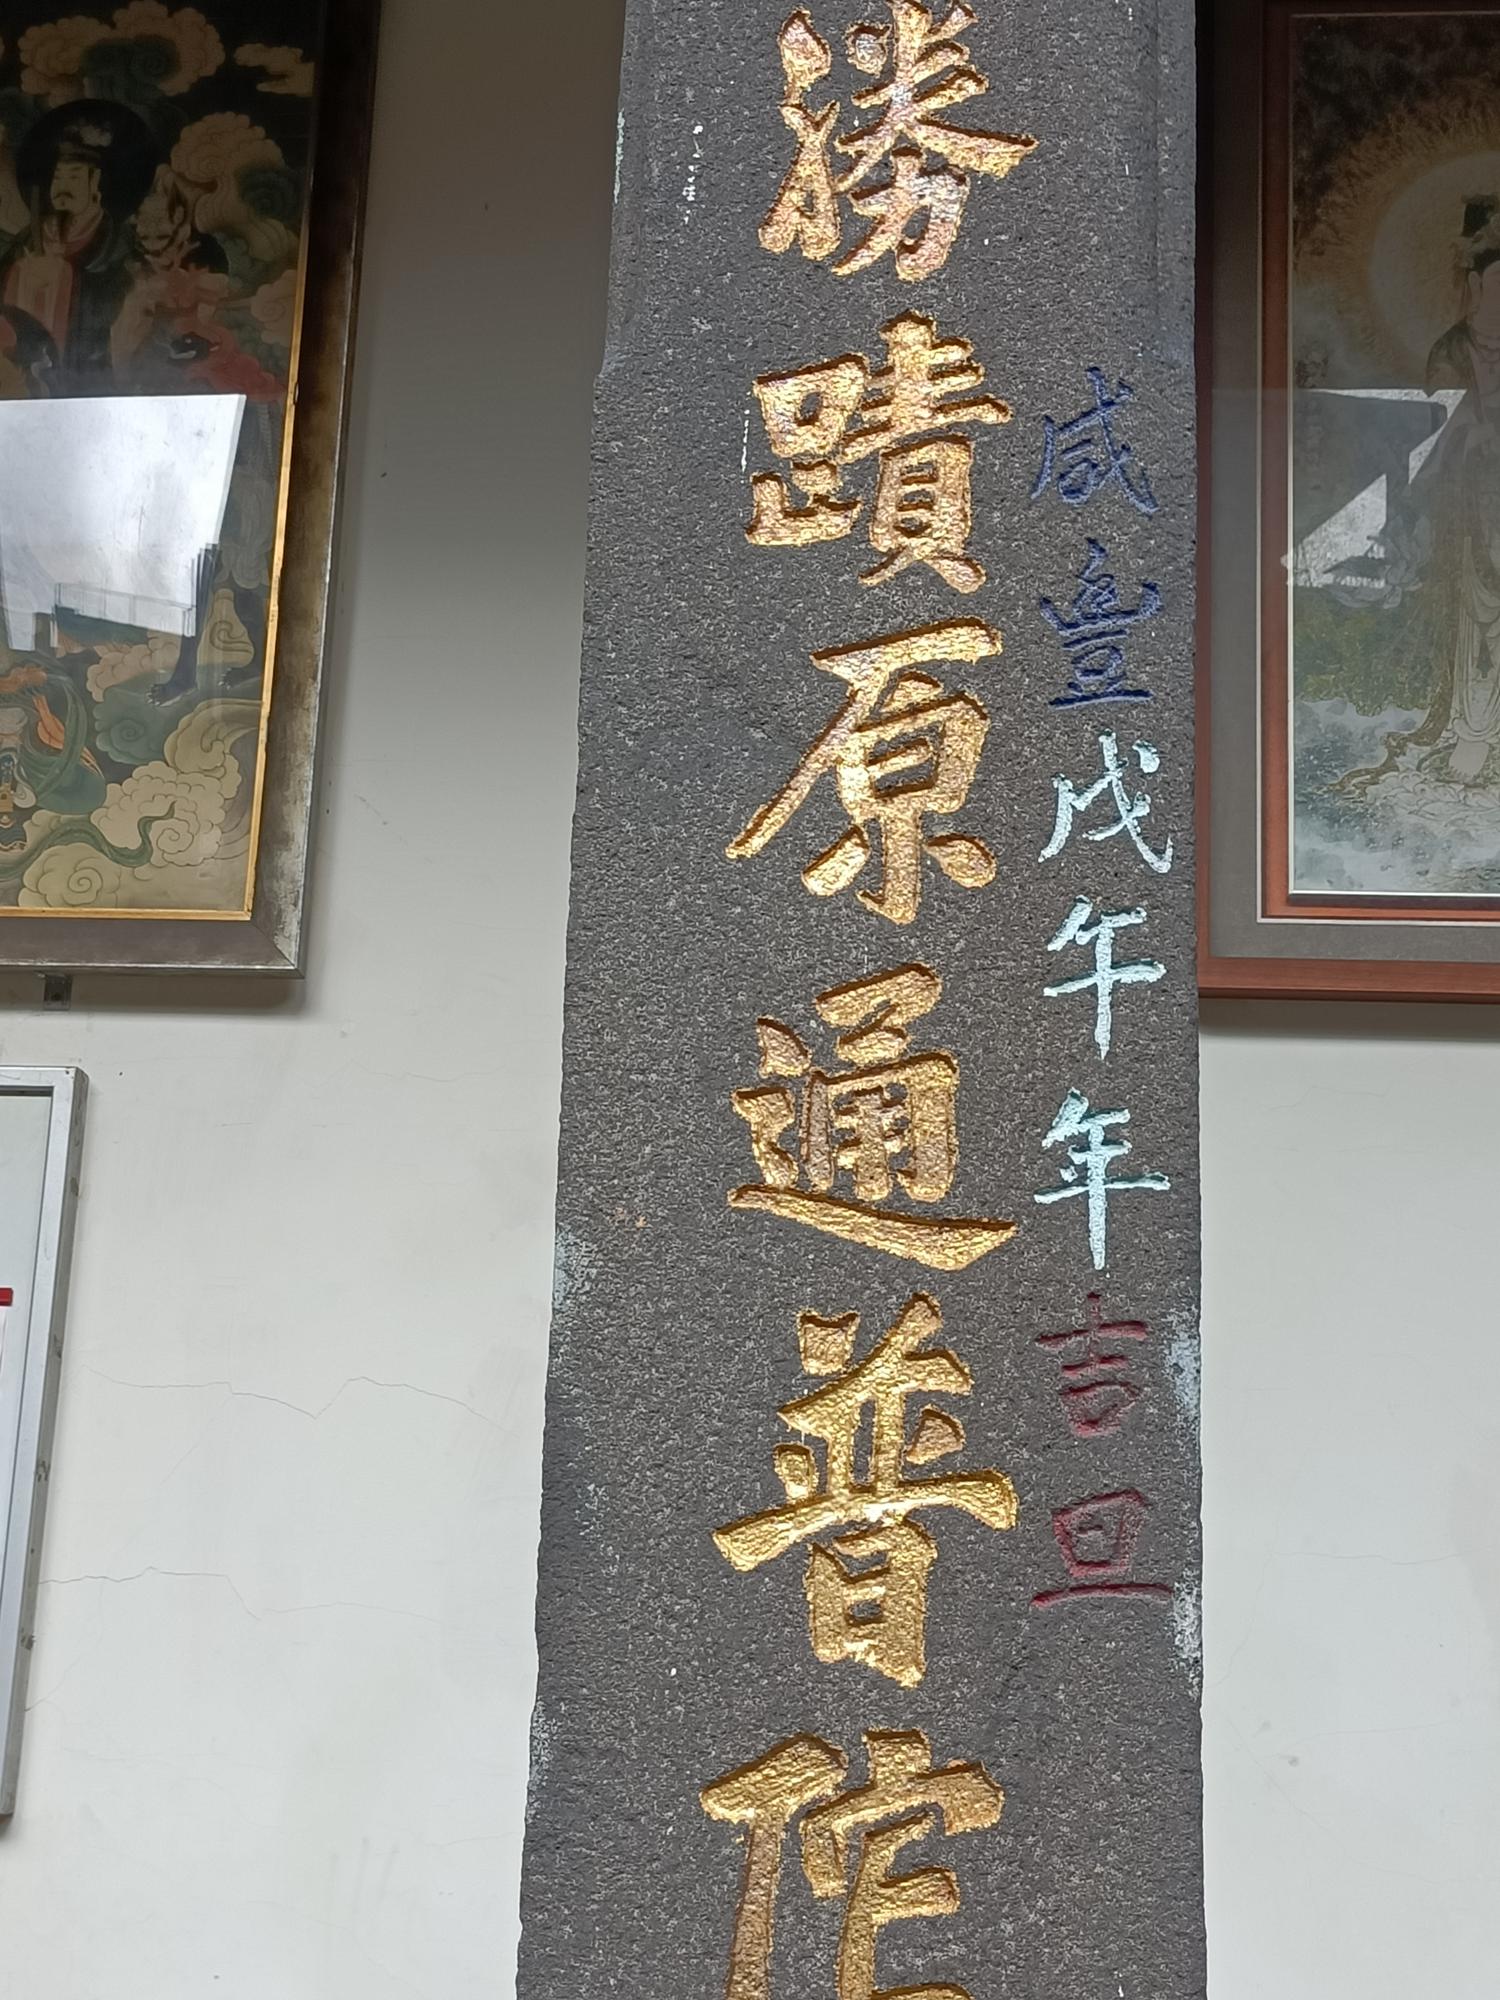 咸豐戊午年吉旦
勝蹟原通普陀